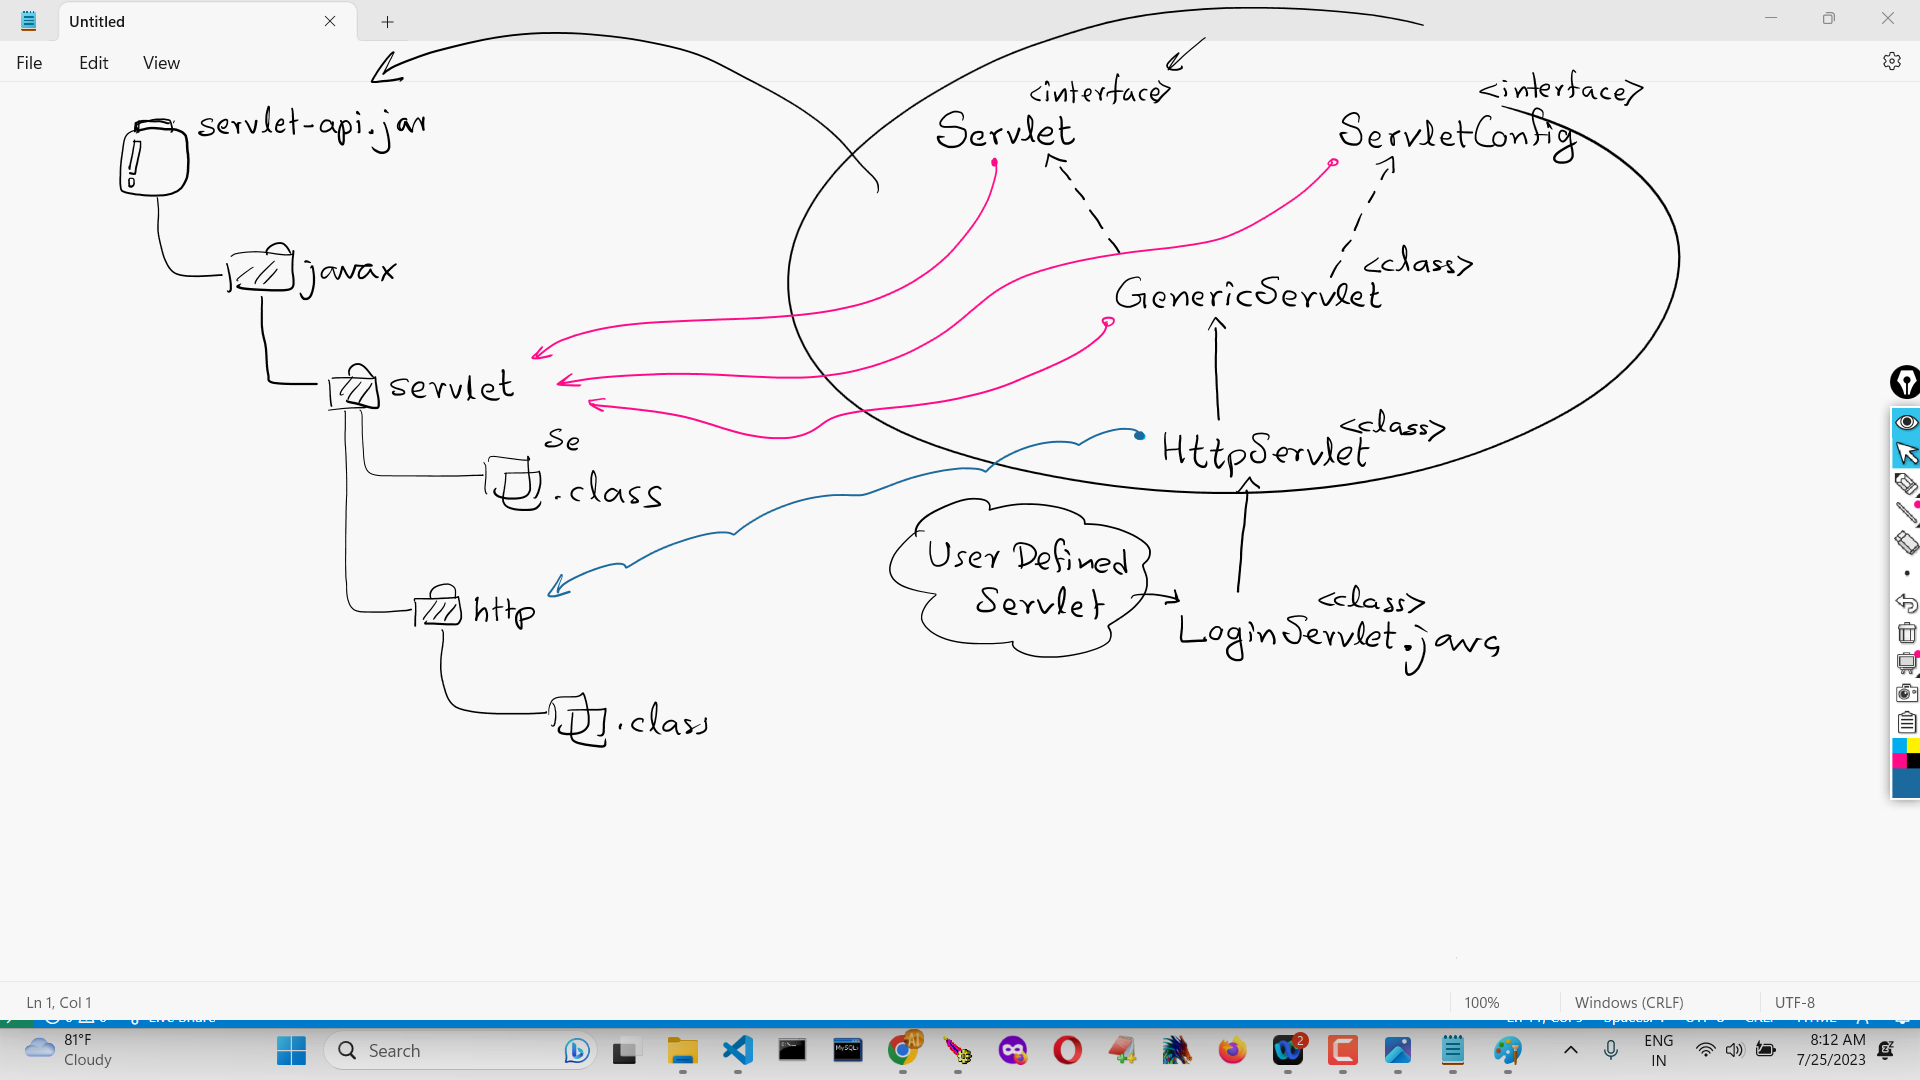 Untitled
File Edit View
servlet-api.jar
javax
servlet
Se
.class
http
.class
<interface>
Servlet
<interface>
ServletConfig
<class>
GenericServlet
<class>
HttpServlet
User Defined
Servlet
<class>
LoginServlet.java
Ln 1, Col 1
100%
Windows (CRLF)
UTF-8
81°F
Cloudy
Search
MySQL
AI
2
ENG
IN
8:12 AM
7/25/2023